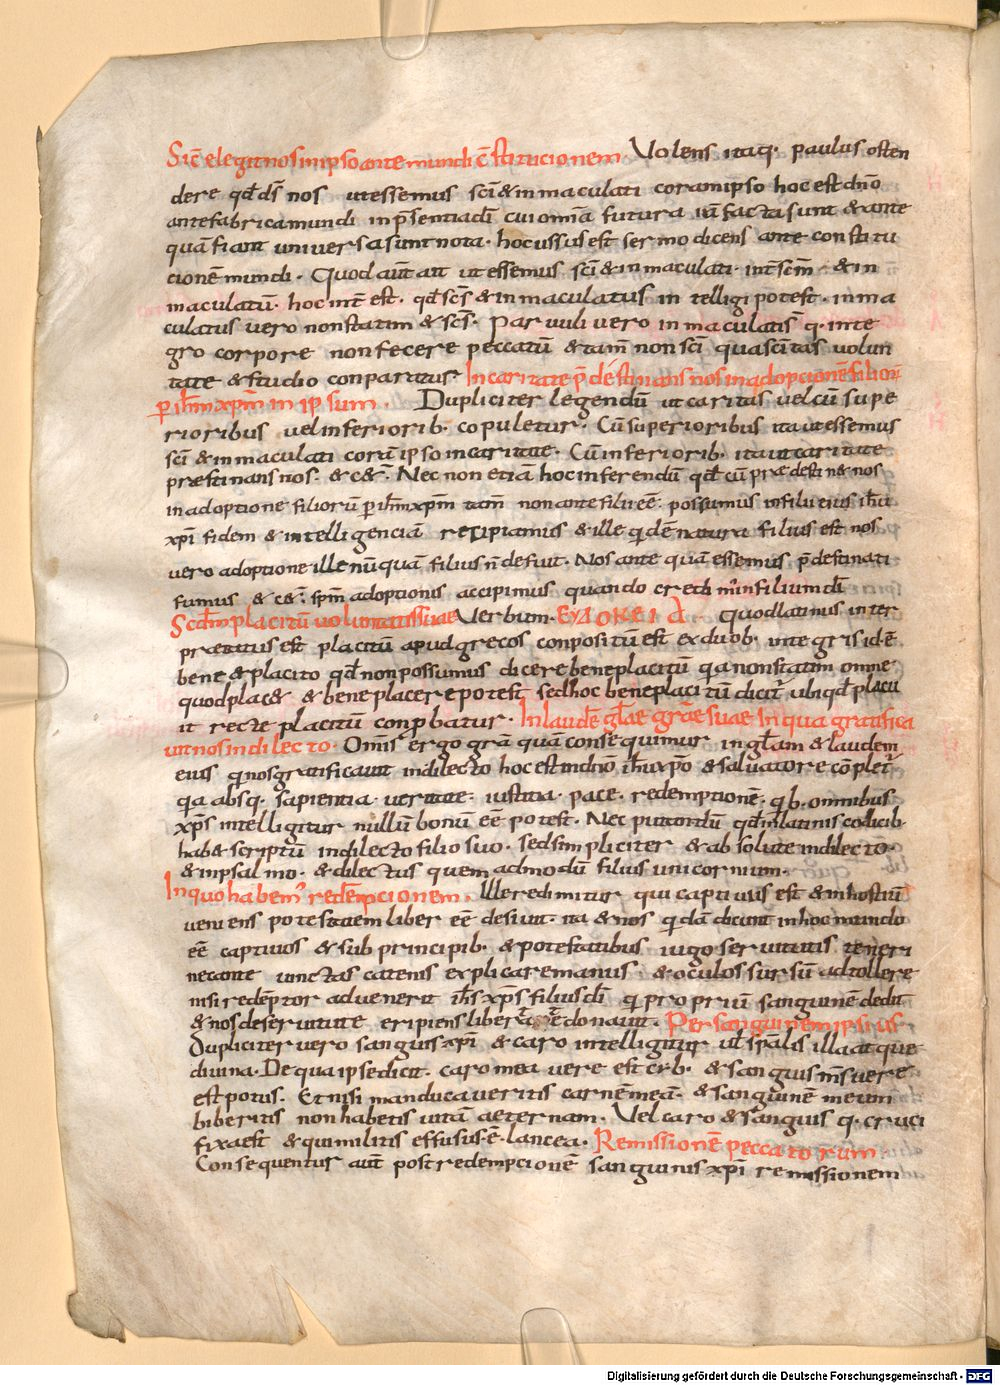 Sic̄ elegit nos in ipso ante mundi c̄stitucionem Volens itaq. paulus osten
dere qd̄ ds̄ nos ut essemus sci̅ & inmaculati coram ipso hoc est dn̄o
ante fabricam mundi in p̄sentia di̅ cui omīa futura iā facta sunt & ante
quā fiant universa sunt nota. hoc ussus est sermo dicens ante constitu
cionē mundi. Quod aūt ait ut essemus sci̅ & inmaculati. int̄ scm̄ & in
maculatū. hoc int̄ est. qd̄ scs̄ & inmaculatus intelligi potest. inma
culatus vero non statim & scs̄. Parvuli vero inmaculati s̄ q. inte
gro corpore non fecere peccatū & tam̄ non sci̅ quia scītas volun
tate & studio conparatur. In caritate p̄destinans nos in adopcionē filior̄
p ih̄m xp̄m in ipsum. Dupliciter legendū ut caritas vel cū supe
rioribus vel inferiorib. copuletur. Cū superioribus ita ut essemus
sci̅ & inmaculati corā ipso in caritate. Cū inferiorib. ita ut caritate
praestinans nos. & c&̄. Nec non etiā hoc inferendū qd̄ cū praedestin& nos
in adoptione filiorū p ih̄m xp̄m tam̄ non ante filii eē possumus ni filii eius ih̄u
xp̄i fidem & intelligenciā recipiamus & ille qdē natura filius est nos
vero adoptione ille nūquā filius n̄ defuit. Nos ante quā essemus p̄destinati
fumus & c&̄. sp̄m adoptionis accipimus quando credim' in filium di̅
Scdm̄ placitū voluntatis suae Verbum. ΕΥΔΟΚΕΙΑ Quod latinus inter
praetatus est placitū apud grecos conpositū est ex duob. integris id ē
bene & placito qd̄ non possumus dicere beneplacitū qa non statim omne
quod plac& & bene placere potest sed hoc beneplacitū dicit̄ ubi qd̄ placu
it recte placitū conp̄batur. In laudē gl̄ae grāe suae In qua gratifica
vit nos in dilecto. Omīs ergo grā quā consequimur in gl̄am & laudem
eius q nos gratificavit in dilecto hoc est in dn̄o ih̄u xp̄o & salvatore cōplet̄
qa absq. sapientia. veritate. iustitia. pace. redemptionē. qb. omnibus
xp̄s intelligitur nullū bonū eē potest. Nec putandū qd̄ in latinis codicib.
hab& scriptū in dilecto filio suo. sed simpliciter & absolute in dilecto.
& in psalmo. & dilectus quem admodū filius unicornium.
In quo habem' redēpcionem. Ille redimitur qui captivus est & in hostiū
veniens potestatem liber eē desivit. ita & nos qdā dicunt in hoc mundo
eē captivos & sub principib. & potestatibus iugo servitutis teneri
nec ante vinctas catenis explicare manus & oculos sursū adtollere
nisi redēptor advenerit ih̄s xp̄s filius di̅ q proprio sanguinē dedit
& nos de servitute eripiens donavit. Per sanguinem ipsius.
Dupliciter vero sanguis xp̄i & caro intelligitur ul̄ sp̄alis illa atque
divina. De qua ipse dicit. caro mea vere est cib. & sanguis m̄s vere
est potus. Et nisi manducaveritis carnē meā. & sanguinem meum
biberitis non habetis vitā aeternam. Vel caro & sanguis q. cruci
fixa est & qui militis effusus ē lancea. Remissionē peccatorum
Consequentius aūt post redempcionē sanguinis xp̄i remissionem
Digitalisierung gefördert durch die Deutsche Forschungsgemeinschaft - DFG